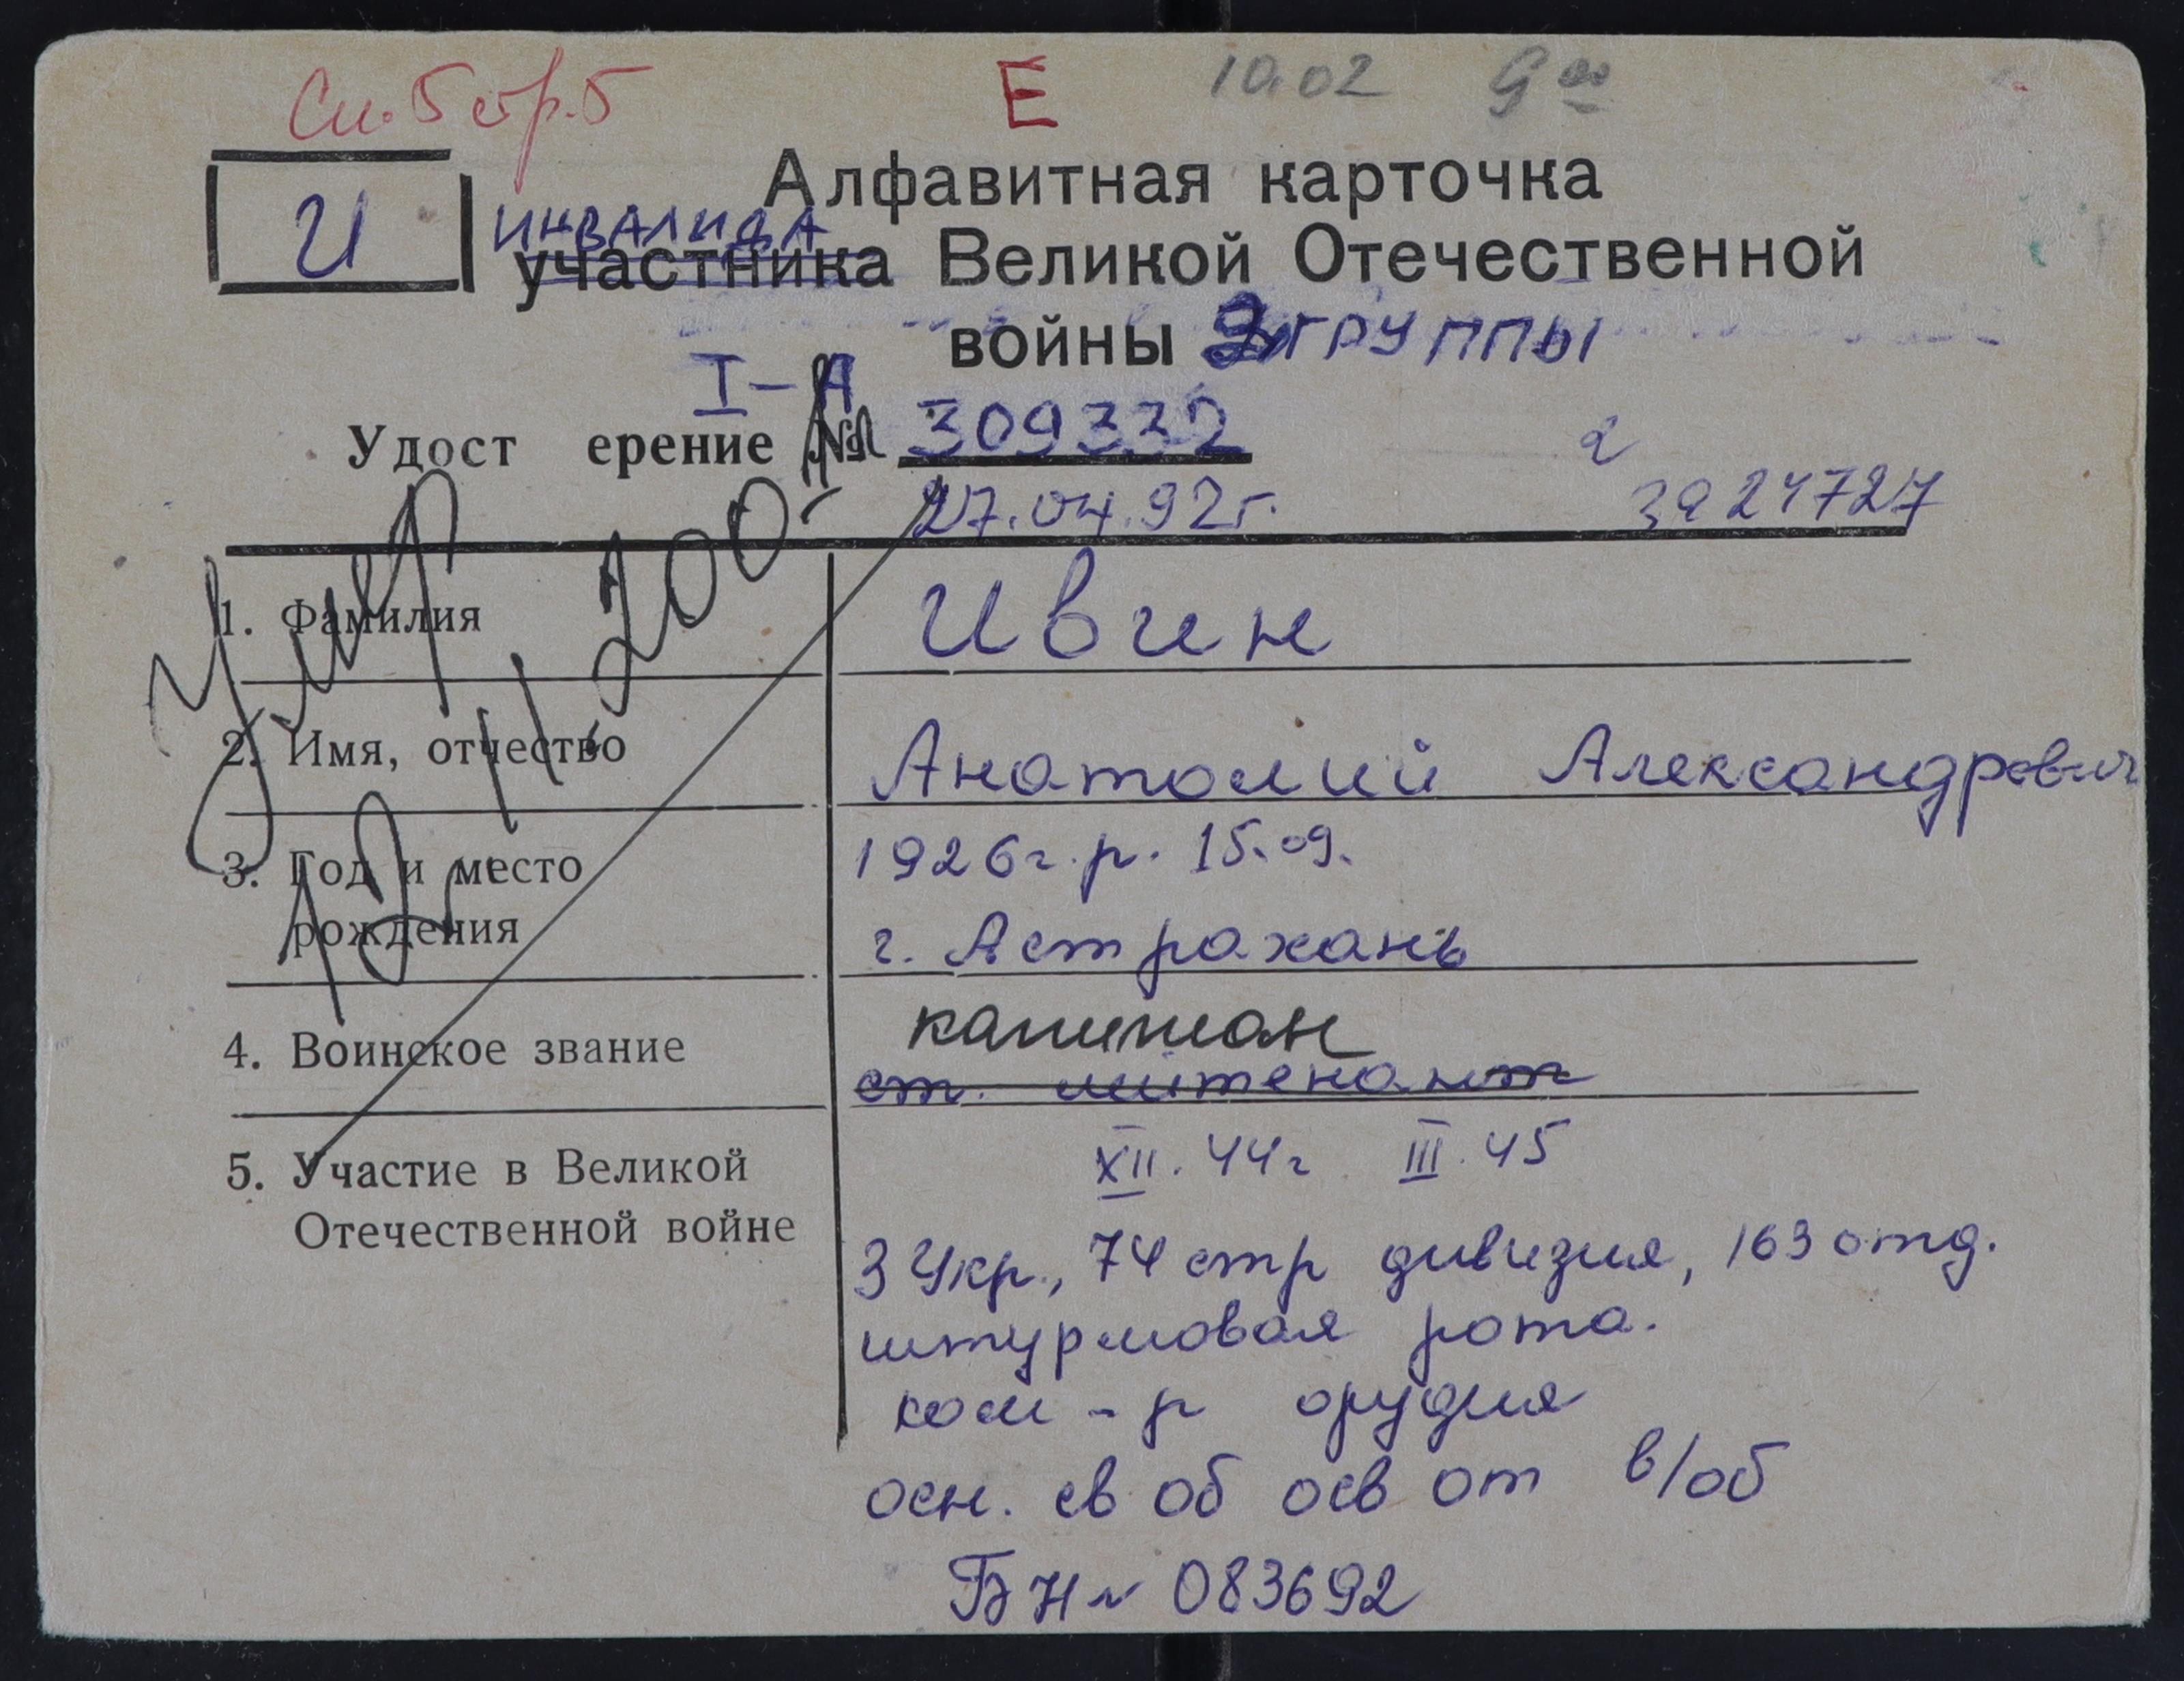 Сп. 5 стр. 5 Е 10.02 9⁰⁰
Алфавитная карточка
И ИНВАЛИДА
участника Великой Отечественной
войны 2 ГРУППЫ
I-А
Удост ерение № 309332
27.04.92г.
1. Фамилия Ивин
2. Имя, отчество Анатолий Александрович
3. Год и место 1926г.р. 15.09.
рождения г. Астрахань
4. Воинское звание капитан
ст. лйтенант
5. Участие в Великой XII. 44г III. 45
Отечественной войне 3 Укр., 74 стр дивизия, 163 отд.
штурмовая рота.
ком-р орудия
осн. св об осв от в/об
БН № 083692
Умер